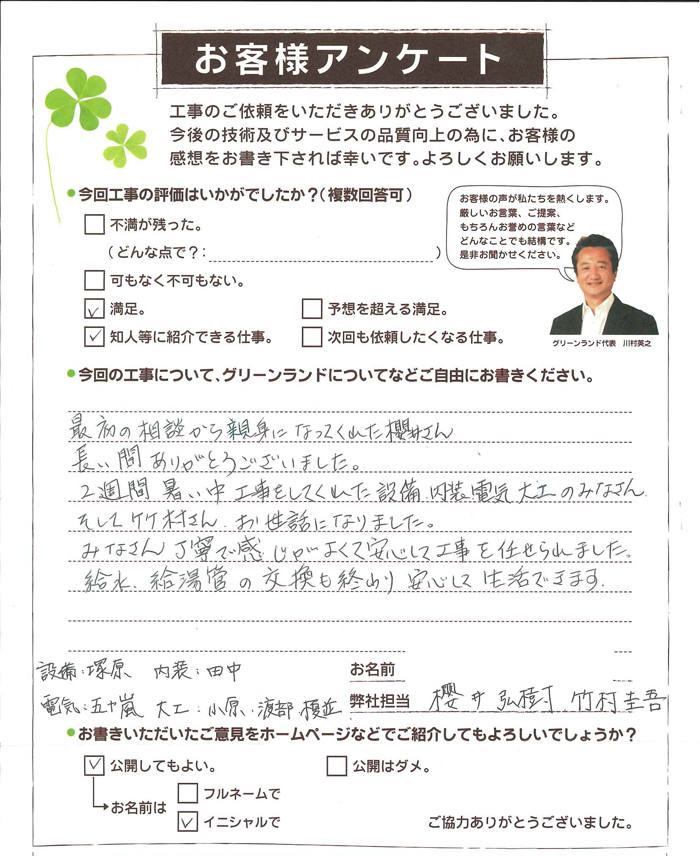 お客様アンケート
工事のご依頼をいただきありがとうございました。
今後の技術及びサービスの品質向上の為に、お客様の
感想をお書き下されば幸いです。よろしくお願いします。
今回工事の評価はいかがでしたか?(複数回答可)
不満が残った。
(どんな点で?: )
可もなく不可もない。
満足。 予想を超える満足。
知人等に紹介できる仕事。 次回も依頼したくなる仕事。
お客様の声が私たちを熱くします。
厳しいお言葉、ご提案、
もちろんお誉めの言葉など
どんなことでも結構です。
是非お聞かせください。
グリーンランド代表 川村英之
今回の工事について、グリーンランドについてなどご自由にお書きください。
最初の相談から親身になってくれた櫻井さん
長い間ありがとうございました。
2週間暑い中工事をしてくれた設備、内装、電気、大工のみなさん、
そして竹村さん、お世話になりました。
みなさん丁寧で感じがよくて安心して工事を任せられました。
給水、給湯管の交換も終わり安心して生活できます。
設備:塚原 内装:田中
電気:五十嵐 大工:小原、渡部、
お名前
弊社担当 櫻井弘樹 竹村圭吾
お書きいただいたご意見をホームページなどでご紹介してもよろしいでしょうか?
公開してもよい。 公開はダメ。
お名前は
フルネームで
イニシャルで
ご協力ありがとうございました。